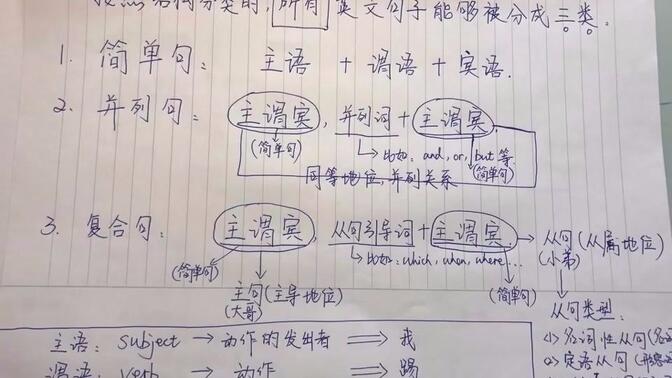 按照结构分类的,所有英文句子能够被分成三类。
1. 简单句: 主语 + 谓语 + 宾语.
2. 并列句: 主谓宾, 并列词 + 主谓宾.
(简单句) 比如: and, or, but 等. (简单句)
同等地位, 并列关系
3. 复合句: 主谓宾, 从句引导词 + 主谓宾. → 从句(从属地位)
(小弟)
(简单句) 比如: which, when, where... (简单句)
主句(主导地位)
(大哥)
从句类型:
<1> 名词性从句(名词
<2> 定语从句(形容词
主语: subject → 动作的发出者 ⟹ 我
谓语: verb → 动作 ⟹ 踢